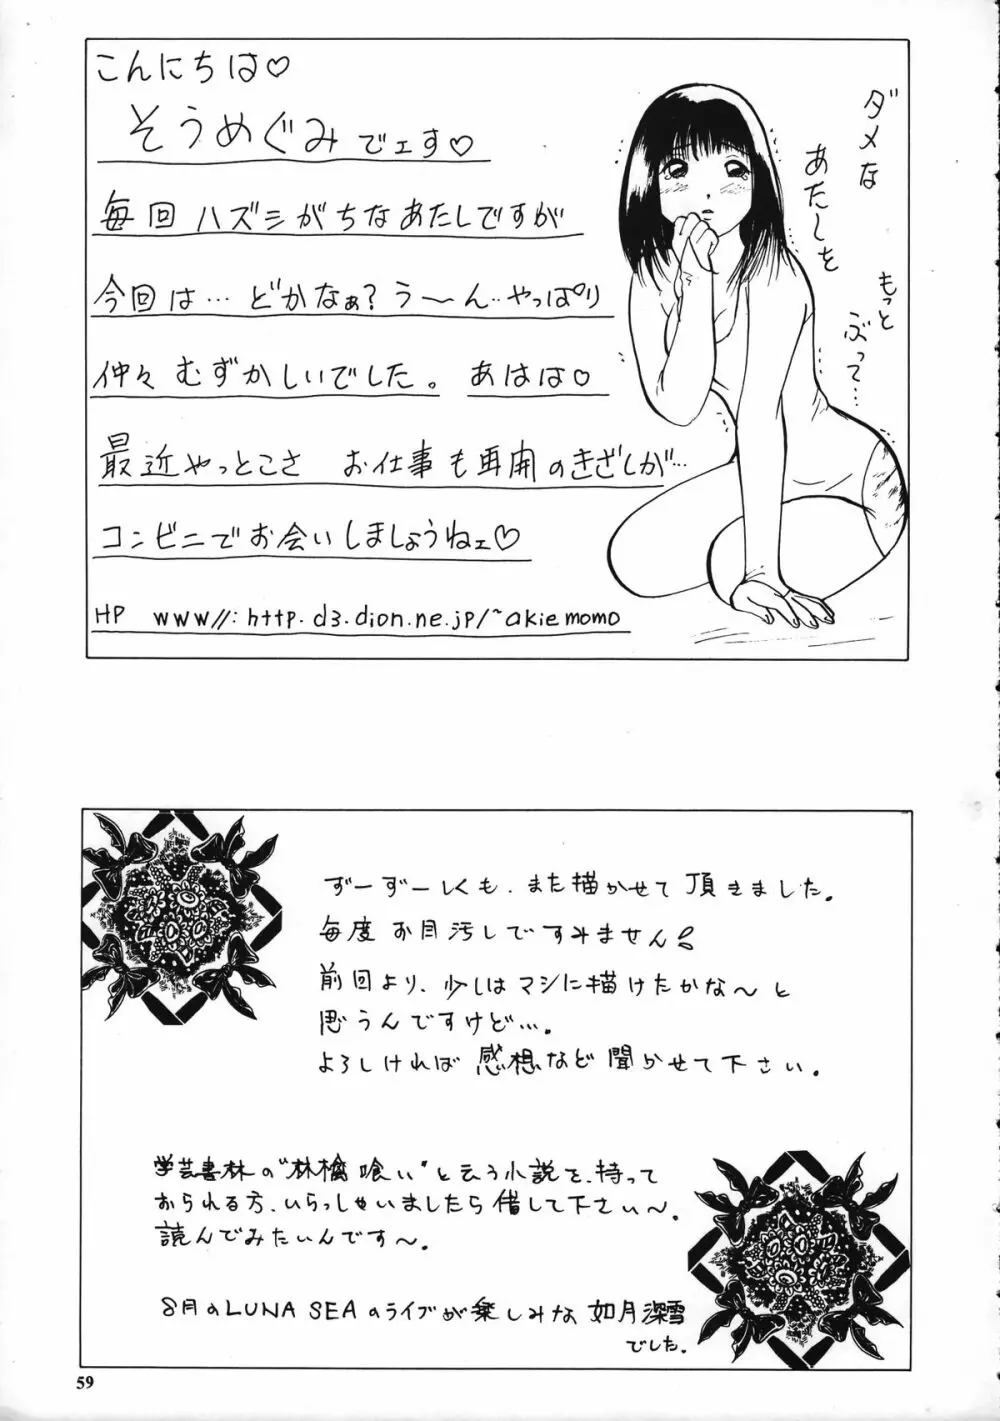 こんにちは♡
そうめぐみでェす♡
毎回ハズシがちなあたしですが
今回は…どかなぁ?う〜ん‥やっぱり
仲々むずかしいでした。あはは♡
最近やっとこさ お仕事も再開のきざしが…
コンビニでお会いしましょうねェ♡
HP www//:http.d3.dion.ne.jp/~akiemomo
ダメな
あたしを
もっと
ぶって…
ずーずーしくも、また描かせて頂きました。
毎度お目汚しですみません!
前回より、少しはマシに描けたかな〜と
思うんですけど…。
よろしければ感想など聞かせて下さい。
学芸書林の"林檎喰い"と云う小説を、持って
おられる方、いらっしゃいましたら借して下さい〜。
読んでみたいんです〜。
8月のLUNA SEAのライブが楽しみな如月深雪
でした。
59